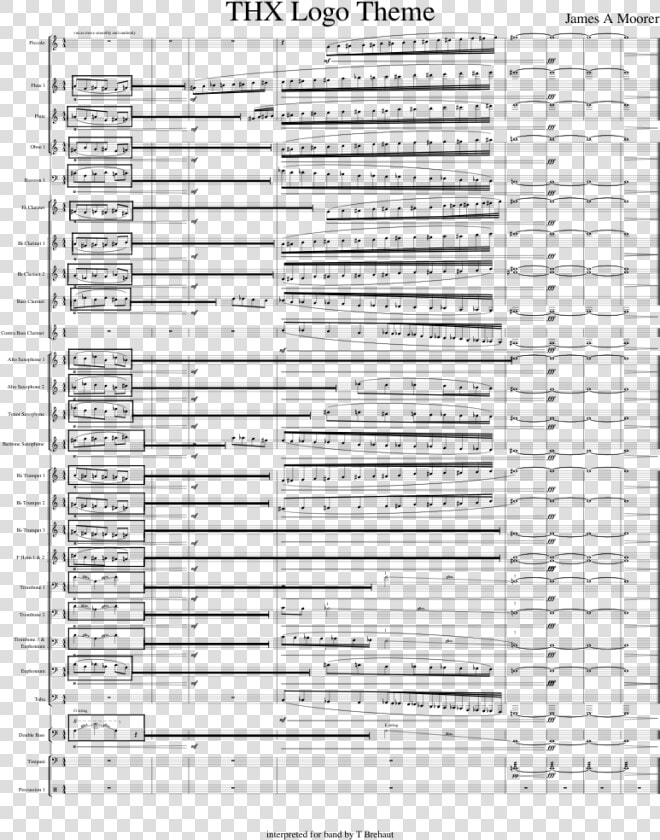 THX Logo Theme
James A Moorer
Piccolo
Flute 1
Flute
Oboe 1
Bassoon 1
Eb Clarinet
Bb Clarinet 1
Bb Clarinet 2
Bass Clarinet
Contra Bass Clarinet
Alto Saxophone 1
Alto Saxophone 2
Tenor Saxophone
Baritone Saxophone
Bb Trumpet 1
Bb Trumpet 2
Bb Trumpet 3
F Horn 1 & 2
Trombone 1
Trombone 2
Trombone 3 &
Euphonium
Euphonium
Tuba
Double Bass
Timpani
Percussion 1
interpreted for band by T Brehaut